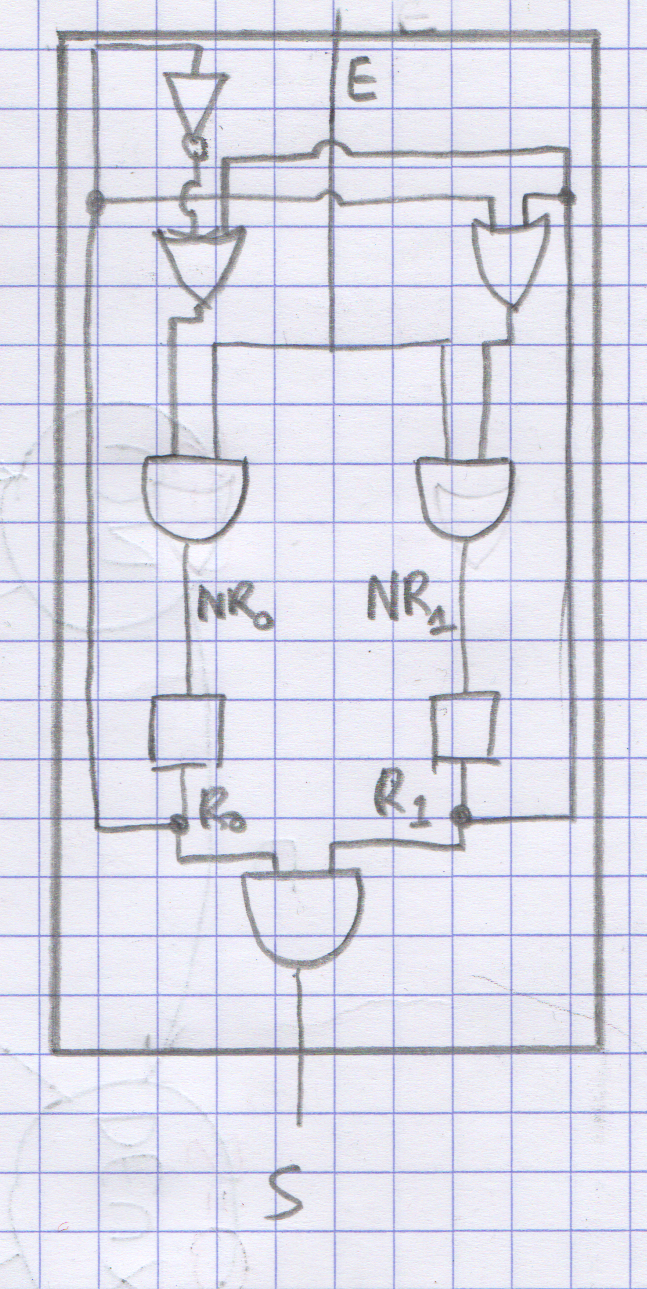 E
NR₀ NR₁
R₀ R₁
S